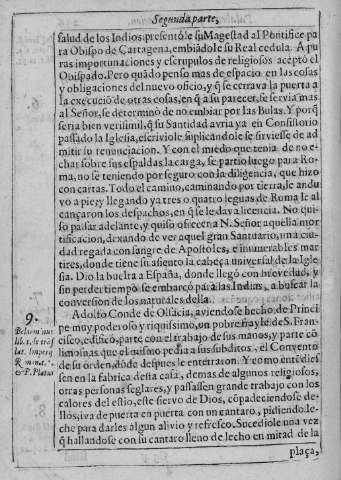 Segunda parte,
salud de los Indios: presentòle su Magestad al Pontifice pa
ra Obispo de Cartagena, embiádole su Real cedula. A pu
ras importunaciones y escrupulos de religiosos aceptò el
Obispado. Pero quãdo penso mas de espacio en las cosas
y obligaciones del nuevo oficio, y q̃ se cerrava la puerta a
la execuciõ de otras cosas, en q̃ a su parecer, se servia mas
al Señor, se determinò de no embiar por las Bulas. Y porq̃
seria bien verisimil, q̃ su Santidad avria ya en Consistorio
passado la Iglesia, escriviole suplicandole se sirviesse de ad
mitir su renunciacion. Y con el miedo que tenia de no e-
char sobre sus espaldas la carga, se partio luego para Ro-
ma, no se teniendo por seguro con la diligencia, que hizo
con cartas. Todo el camino, caminando por tierra, le andu
vo a pie; y llegando ya tres o quatro leguas de Roma le al
cançaron los despachos, en q̃ le dava licencia. No qui-
so passar adelante, y quiso ofrecer a N. Señor aquella mor
tificacion, dexando de ver aquel gran Santuario, una ciu-
dad regada con sangre de Apostoles, e inumerables mar
tires, donde tiene su asiento la cabeça universal de la Igle
sia. Dio la buelta a España, donde llegò con brevedad, y
sin perder tiempo se embarcò para las Indias, a buscar la
conversion de los naturales della.
9.
Adolfo Conde de Olsacia, aviendose hecho de Princi
pe muy poderoso y riquissimo, un pobre frayle de S. Fran
cisco, edificò, parte con el trabajo de sus manos, y parte cõ
limosnas que el mismo pedia a sus subditos, el Convento
de su orden, dõde despues le enterraron. Y como entẽdies
sen en la fabrica desta casa, demas de algunos religiosos,
otras personas seglares, y passassen grande trabajo con los
calores del estio, este siervo de Dios, cõpadeciendose de-
llos, iva de puerta en puerta con un cantaro, pidiendo le-
che para darles algun alivio y refresco. Sucediole una vez
q̃ hallandose con su cantaro lleno de leche en mitad de la
plaça,